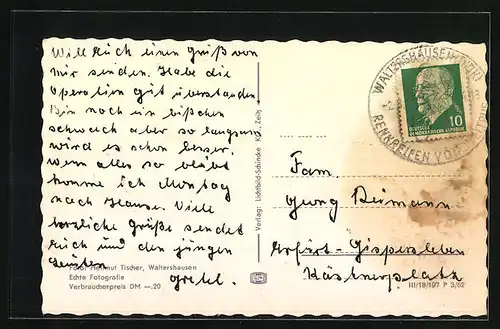 Will euch einen Gruß von
mir senden. Habe die
Operation gut überstanden.
Bin noch ein bißchen
schwach aber so langsam
wird es schon besser.
Wenn alles so bleibt
komme ich Montag
nach Hause. Viele
herzliche Grüße sendet
euch und den jungen
Leuten
Gretel.
Foto: Helmut Tischer, Waltershausen
Echte Fotografie
Verbraucherpreis DM —.20
Verlag: Lichtbild-Schincke Zeitz
WALTERSHAUSEN
RENNREIFEN VOM
10
DEUTSCHE
DEMOKRATISCHE REPUBLIK
Fam.
Georg Reimann
Erfurt-Gispersleben
Kästnerplatz
III/18/197 P 3/62